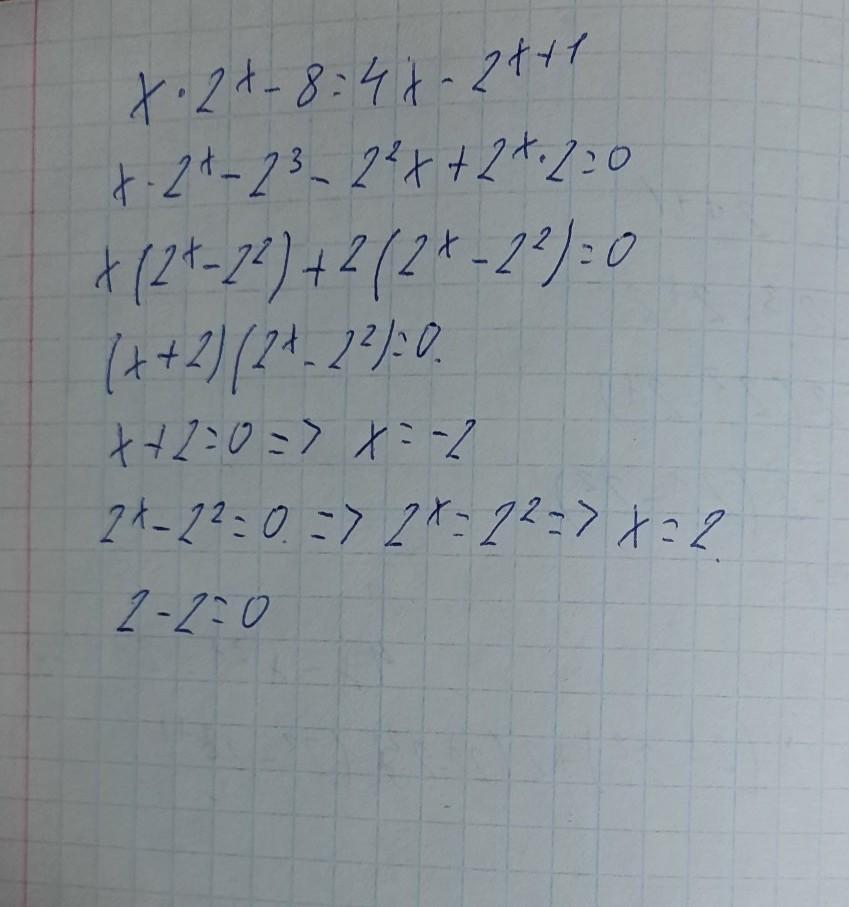 x·2ˣ-8=4x-2ˣ⁺¹
x·2ˣ-2³-2²x+2ˣ·2=0
x(2ˣ-2²)+2(2ˣ-2²)=0
(x+2)(2ˣ-2²)=0.
x+2=0=> x=-2
2ˣ-2²=0. => 2ˣ=2²=> x=2.
2-2=0